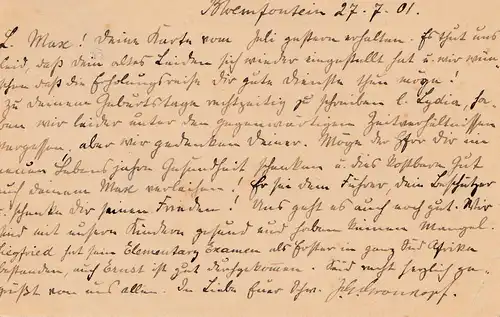 Bloemfontein 27.7.01.
L. Max! Deine Karte vom Juli gestern erhalten. Es thut uns
leid, daß dein altes Leiden sich wieder eingestellt hat u. wir wün-
schen daß die Erholungsreise dir gute Dienste thun möge!
Zu deinem Geburtstage rechtzeitig zu schreiben l. Lydia, ha-
ben wir leider unter den gegenwärtigen Zeitverhältnissen
vergessen, aber wir gedenken deiner. Möge der Herr dir im
neuen Lebensjahre Gesundheit schenken u. dies kostbare Gut
auch deinem Max verleihen! Er sei dein Führer, dein Beschützer
u. schenke dir seinen Frieden! Uns geht es auch noch gut. Wir
sind mit unsern Kindern gesund und haben keinen Mangel.
Siegfried hat sein Elementary Examen als Erster in ganz Süd Afrika
bestanden, auch Ernst ist gut durchgekommen. Seid recht herzlich ge-
grüßt von uns allen. In Liebe Euer Schw.